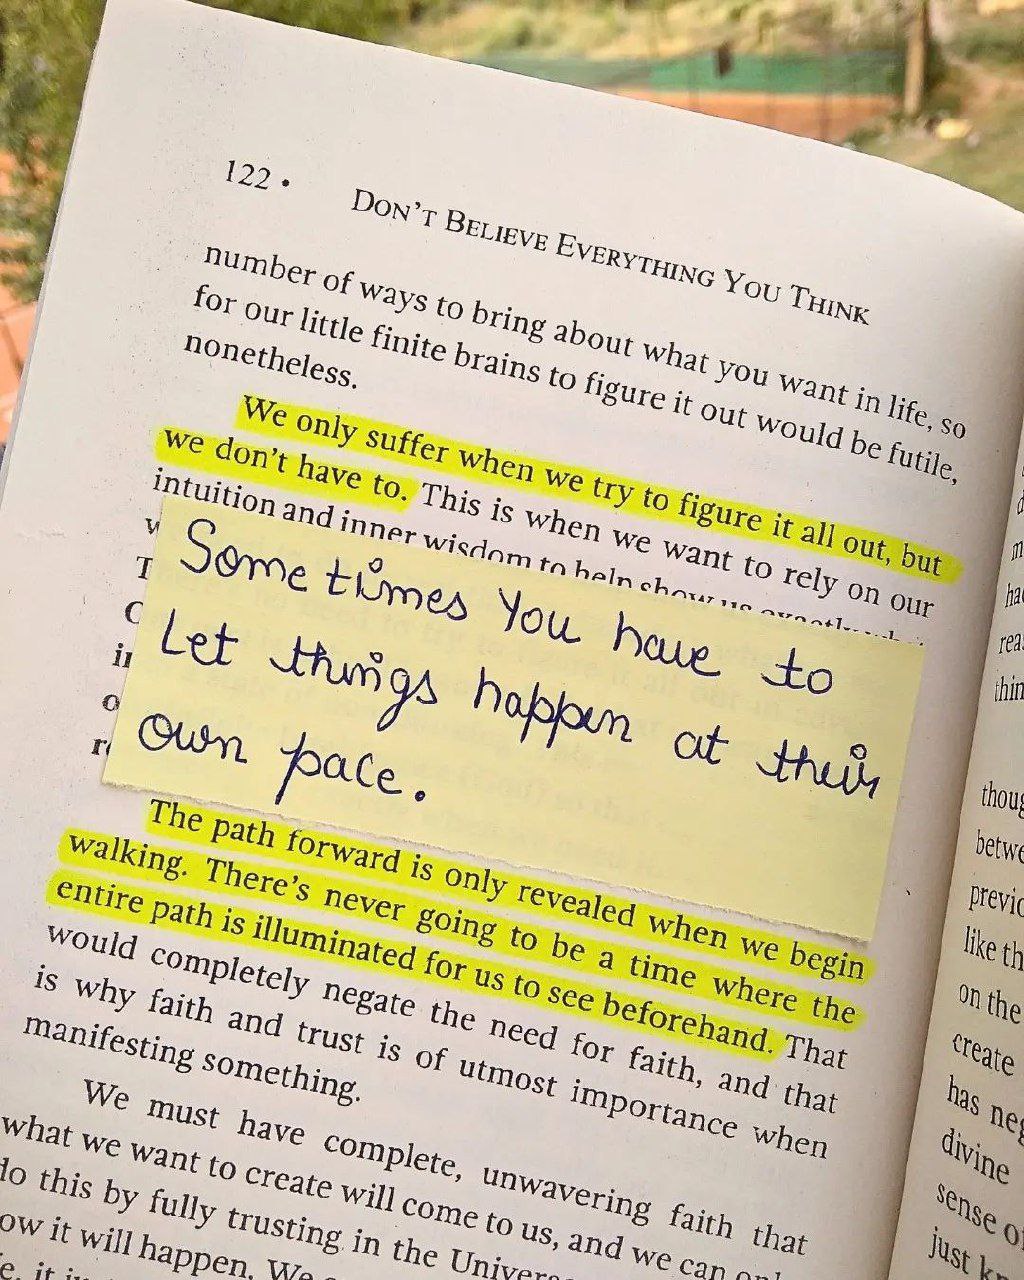 122 • DON'T BELIEVE EVERYTHING YOU THINK
number of ways to bring about what you want in life, so
for our little finite brains to figure it out would be futile,
nonetheless.
We only suffer when we try to figure it all out, but
we don't have to. This is when we want to rely on our
intuition and inner wisdom to help show us exactly
Sometimes You have to
Let things happen at their
own pace.
The path forward is only revealed when we begin
walking. There's never going to be a time where the
entire path is illuminated for us to see beforehand. That
would completely negate the need for faith, and that
is why faith and trust is of utmost importance when
manifesting something.
We must have complete, unwavering faith that
what we want to create will come to us, and we can
do this by fully trusting in the
how it will happen. We
thin
thoug
betwe
previo
like th
on the
create
has neg
divine
sense o
just